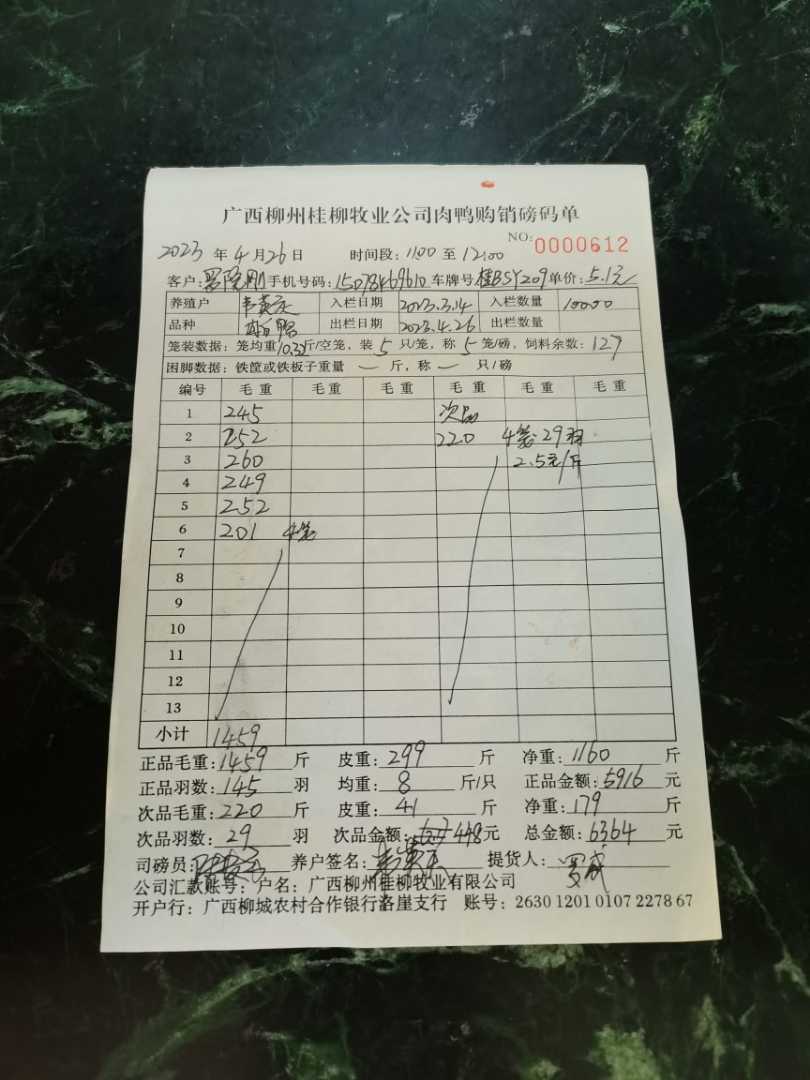 广西柳州桂柳牧业公司肉鸭购销磅码单
NO: 0000612
2023 年 4 月 26 日 时间段: 11:00 至 12:00
客户: 手机号码: 15078469610 车牌号 桂B5Y209 单价: 5.1元
养殖户 入栏日期 2023.3.14 入栏数量 10000
品种 出栏日期 2023.4.26 出栏数量
笼装数据: 笼均重 10.32 斤/空笼, 装 5 只/笼, 称 5 笼/磅, 饲料余数: 127
困脚数据: 铁筐或铁板子重量 — 斤, 称 — 只/磅
编号 毛重 毛重 毛重 毛重 毛重 毛重
1 245 次品
2 252 220 4笼 29羽
3 260 2.5元/斤
4 249
5 252
6 201 4笼
7
8
9
10
11
12
13
小计 1459
正品毛重: 1459 斤 皮重: 299 斤 净重: 1160 斤
正品羽数: 145 羽 均重: 8 斤/只 正品金额: 5916 元
次品毛重: 220 斤 皮重: 41 斤 净重: 179 斤
次品羽数: 29 羽 次品金额: 448 元 总金额: 6364 元
司磅员: 养户签名: 提货人:
公司汇款账号: 户名: 广西柳州桂柳牧业有限公司
开户行: 广西柳城农村合作银行洛崖支行 账号: 2630 1201 0107 2278 67